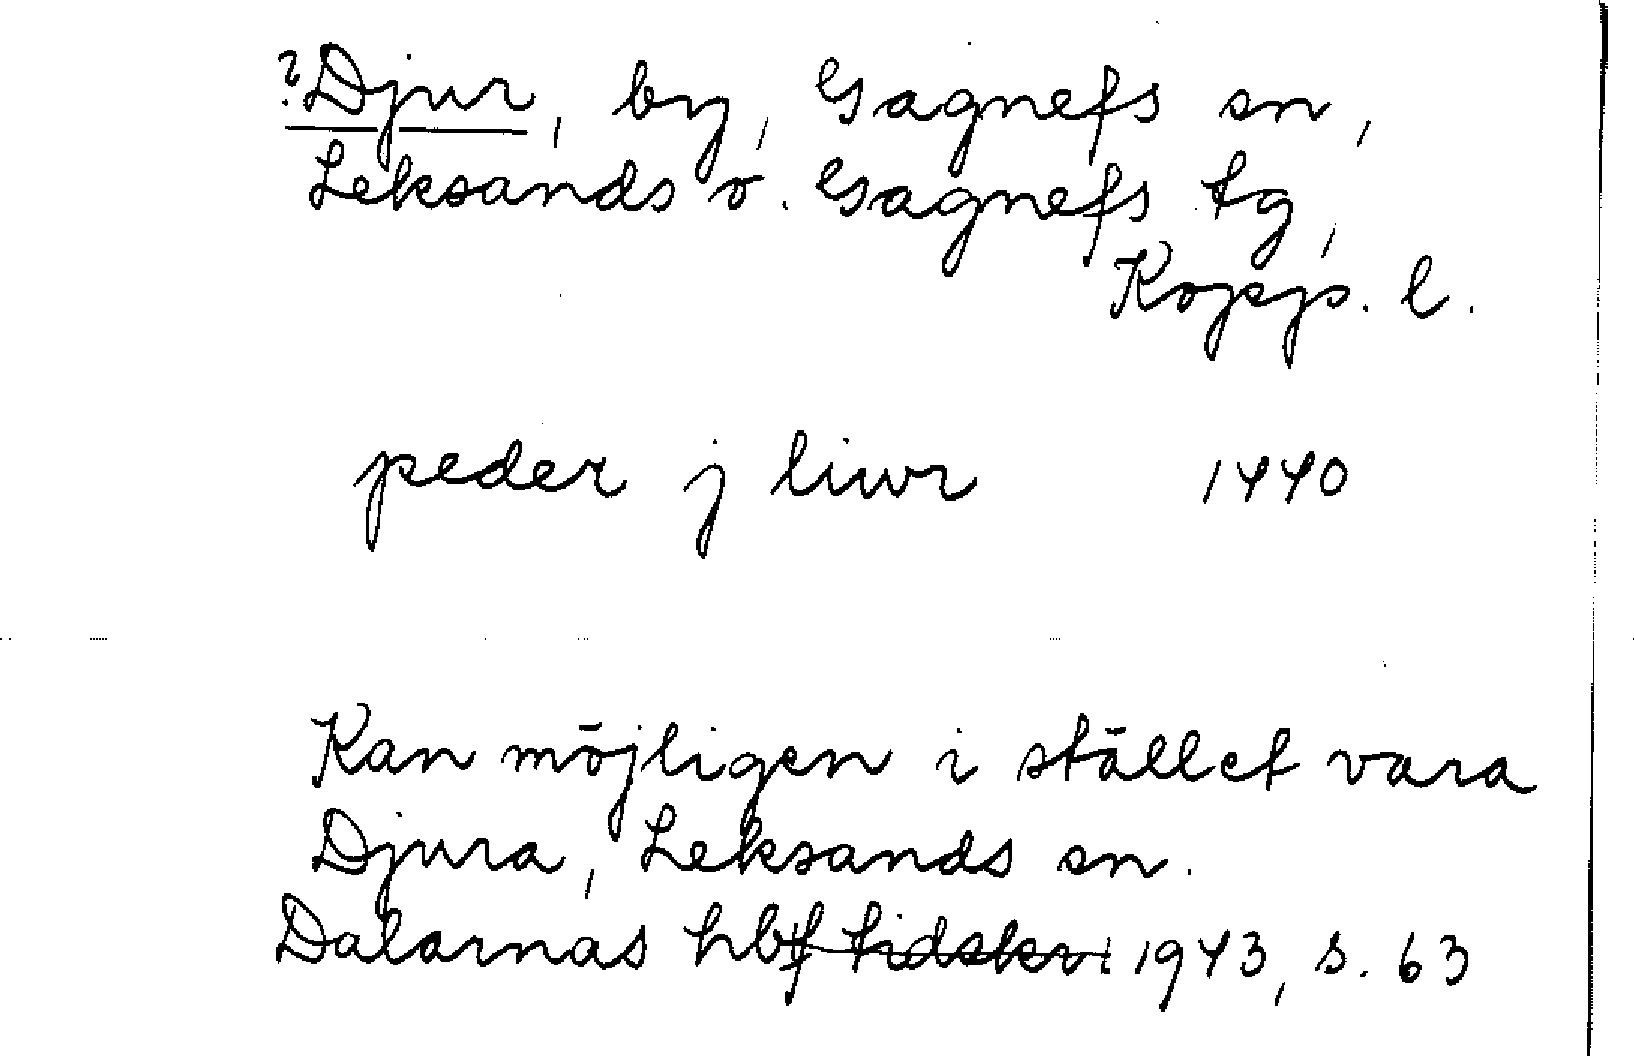 ?Djur, by, Gagnefs sn,
Leksands o. Gagnefs tg,
Kopp. l.
peder j liwr 1440
Kan möjligen i stället vara
Djura, Leksands sn.
Dalarnas hbf tidskr. 1943, s. 63